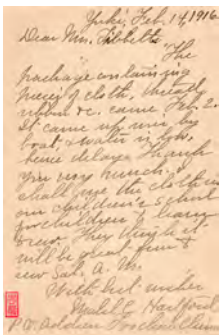 Yuki, Feb. 14, 1916.
Dear Mrs. Tibbetts
"The
package containing
pieces of cloth, thread,
ribbon &c. came Feb. 2.
It came up river by
boat, & water is low,
hence delay. Thank
you very much. I
shall use the cloth in
our children's school
for children to learn
to sew. They think it
will be great fun to
sew Sat. A. M.
With best wishes
Mabel C. Hartford
P.O. Address Foochow China